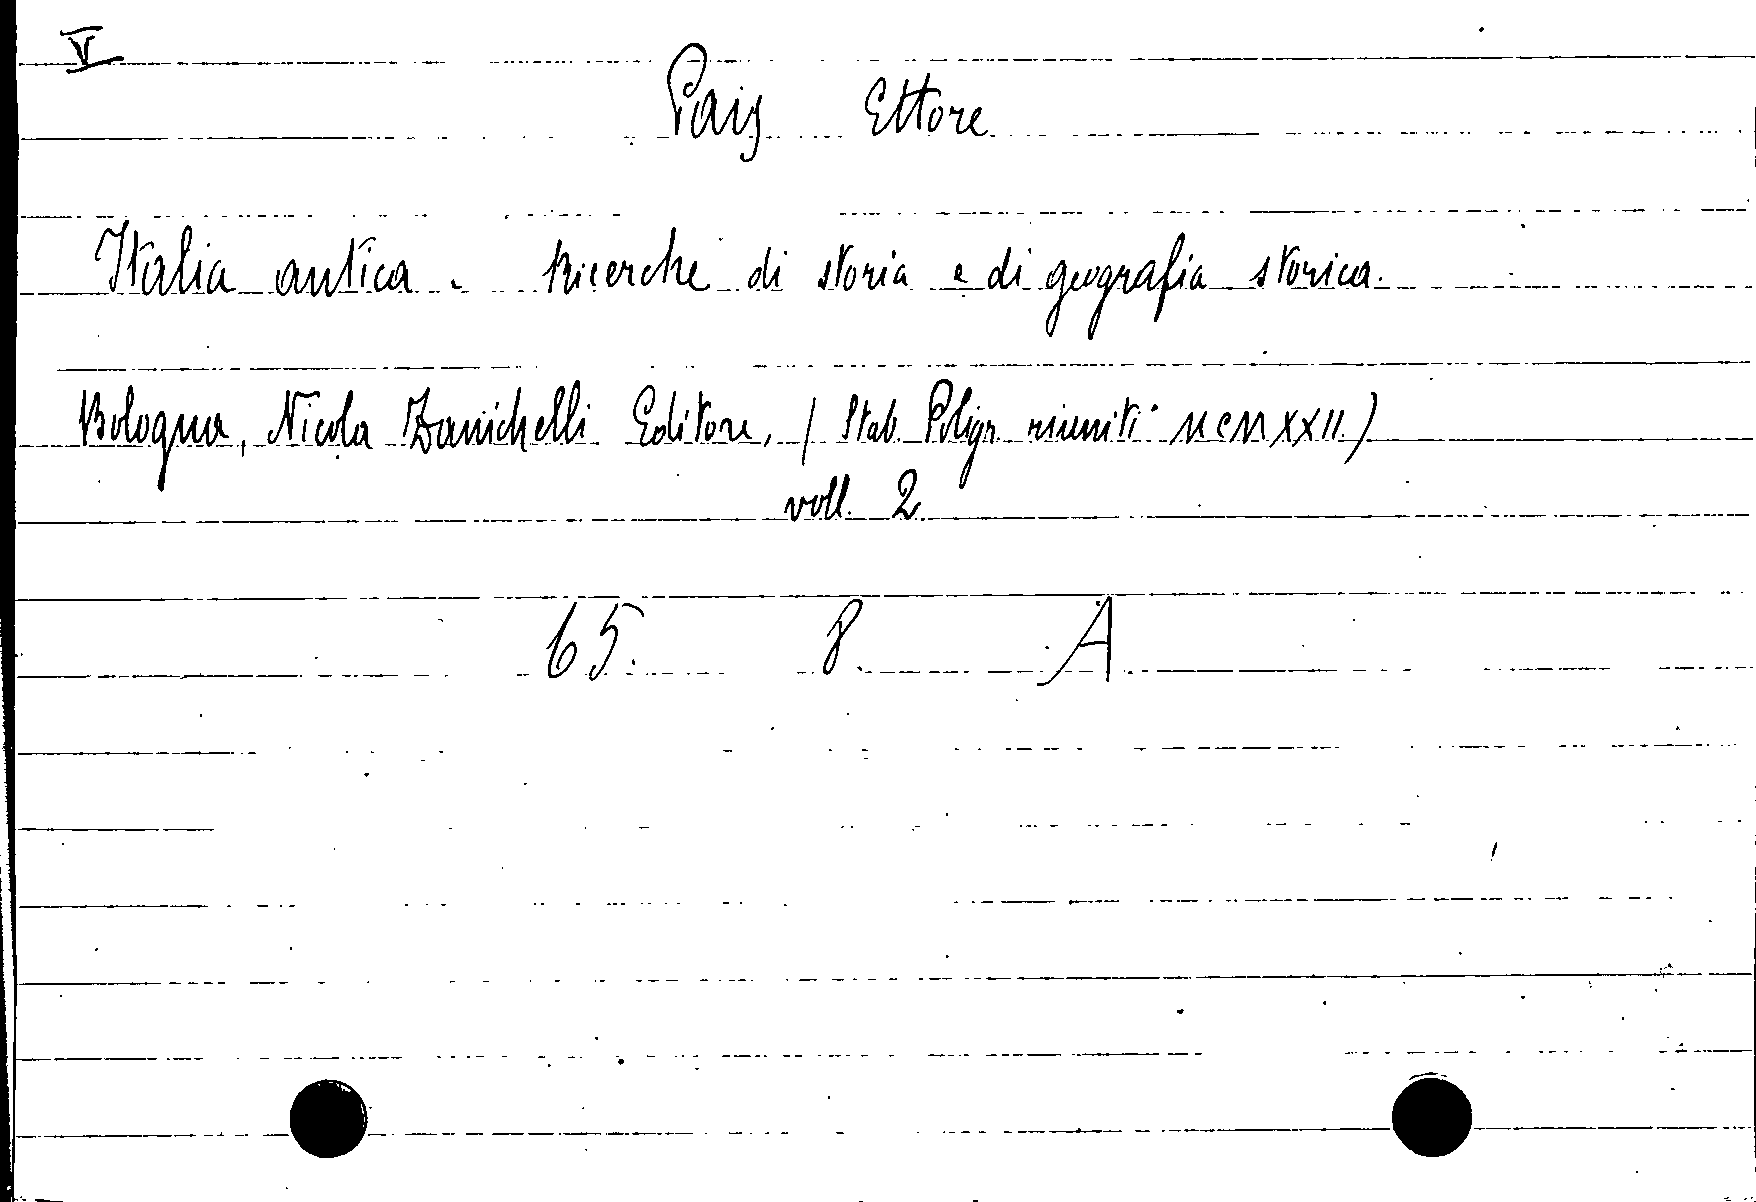 V
Pais Ettore
Italia antica. Ricerche di storia e di geografia storica.
Bologna, Nicola Zanichelli Editore, (Stab. Poligr. riuniti MCMXXII.)
voll. 2.
65. 8. A.